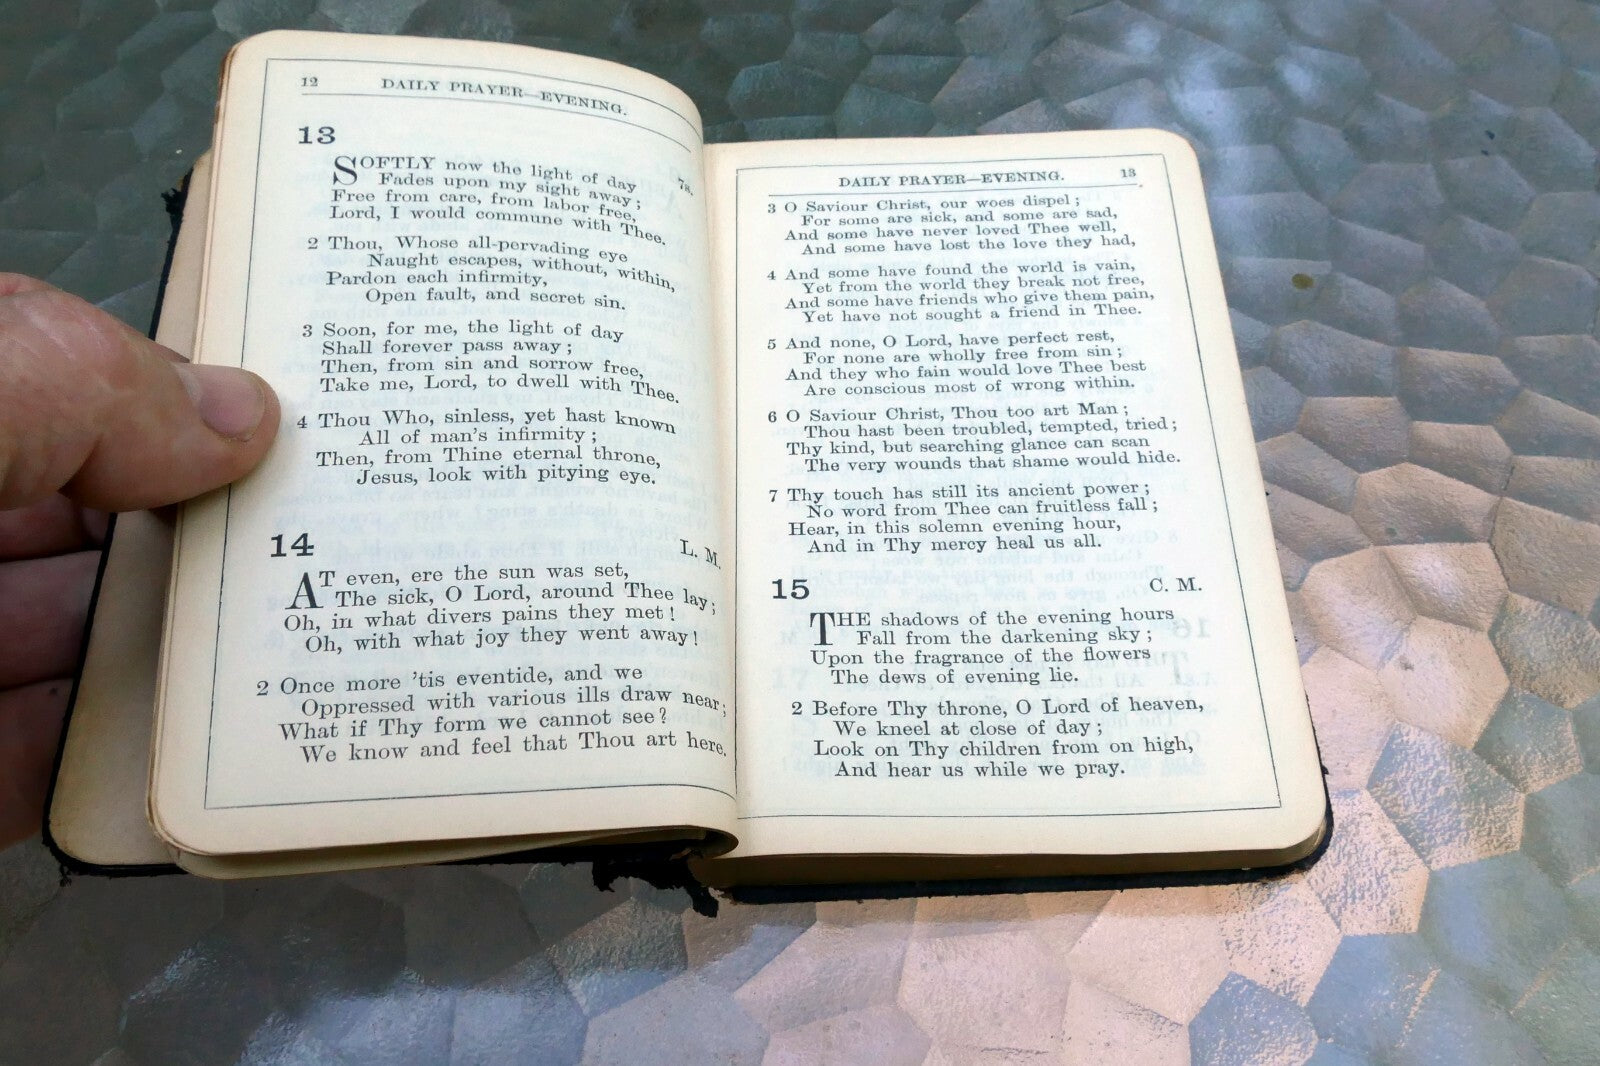 12 DAILY PRAYER—EVENING.
13
7s.
SOFTLY now the light of day
Fades upon my sight away;
Free from care, from labor free,
Lord, I would commune with Thee.
2 Thou, Whose all-pervading eye
Naught escapes, without, within,
Pardon each infirmity,
Open fault, and secret sin.
3 Soon, for me, the light of day
Shall forever pass away;
Then, from sin and sorrow free,
Take me, Lord, to dwell with Thee.
4 Thou Who, sinless, yet hast known
All of man's infirmity;
Then, from Thine eternal throne,
Jesus, look with pitying eye.
14 L. M.
AT even, ere the sun was set,
The sick, O Lord, around Thee lay;
Oh, in what divers pains they met!
Oh, with what joy they went away!
2 Once more 'tis eventide, and we
Oppressed with various ills draw near;
What if Thy form we cannot see?
We know and feel that Thou art here.
DAILY PRAYER—EVENING. 13
3 O Saviour Christ, our woes dispel;
For some are sick, and some are sad,
And some have never loved Thee well,
And some have lost the love they had,
4 And some have found the world is vain,
Yet from the world they break not free,
And some have friends who give them pain,
Yet have not sought a friend in Thee.
5 And none, O Lord, have perfect rest,
For none are wholly free from sin;
And they who fain would love Thee best
Are conscious most of wrong within.
6 O Saviour Christ, Thou too art Man;
Thou hast been troubled, tempted, tried;
Thy kind, but searching glance can scan
The very wounds that shame would hide.
7 Thy touch has still its ancient power;
No word from Thee can fruitless fall;
Hear, in this solemn evening hour,
And in Thy mercy heal us all.
15 C. M.
THE shadows of the evening hours
Fall from the darkening sky;
Upon the fragrance of the flowers
The dews of evening lie.
2 Before Thy throne, O Lord of heaven,
We kneel at close of day;
Look on Thy children from on high,
And hear us while we pray.